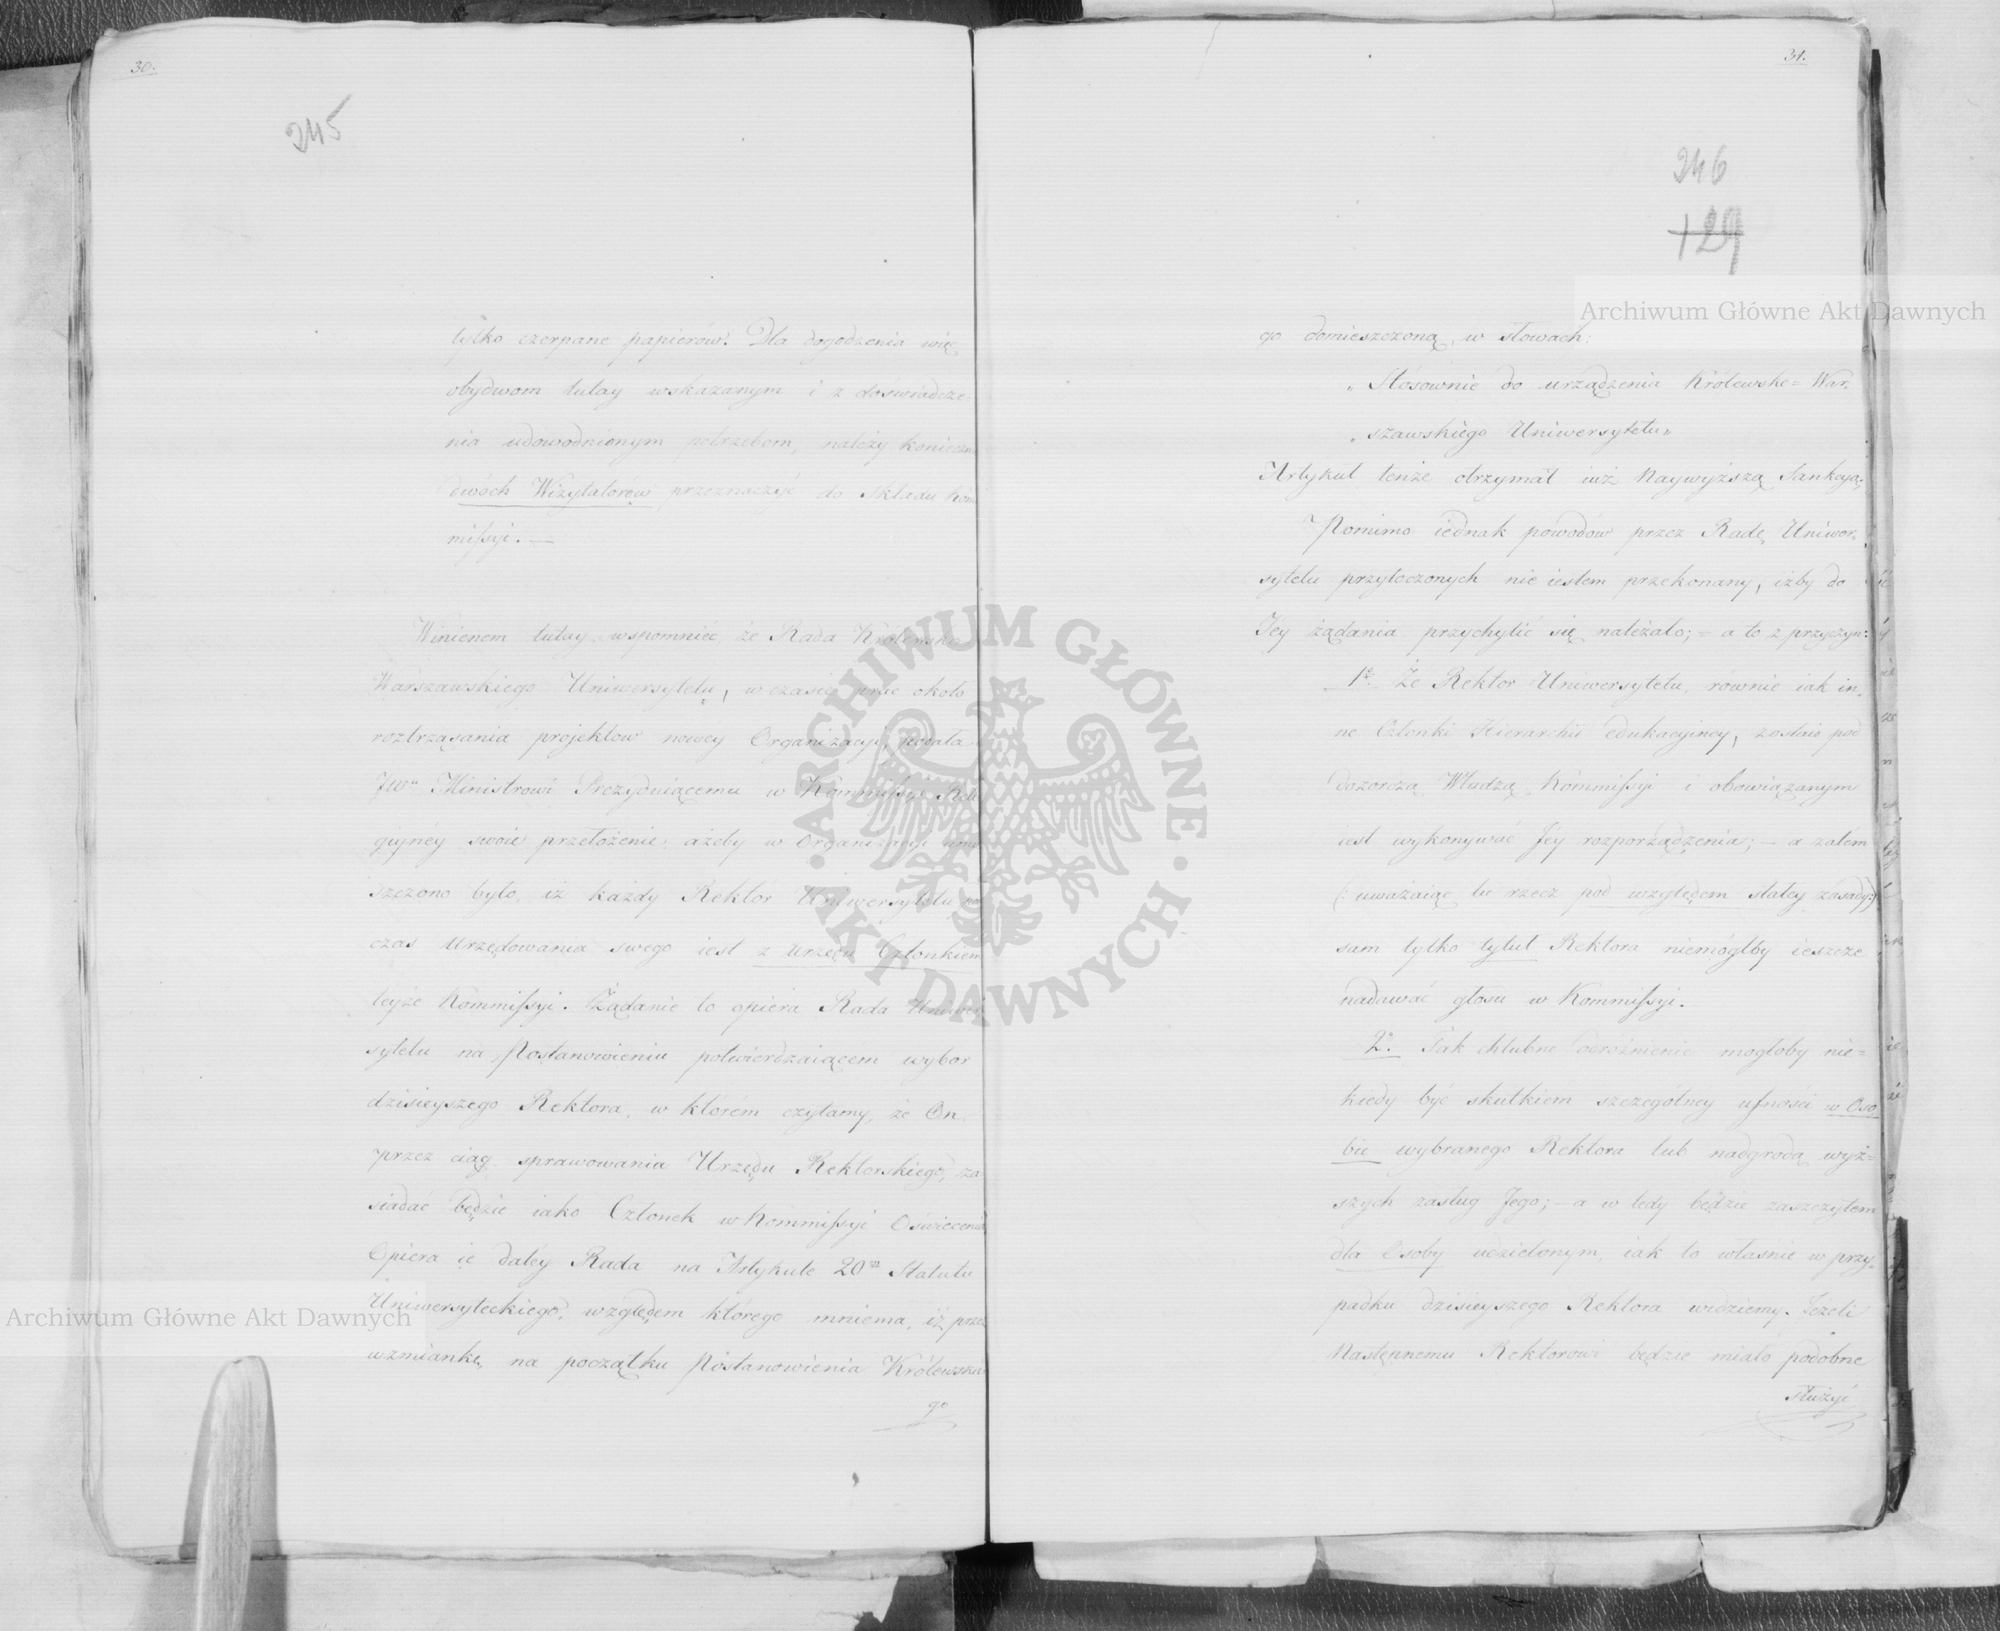 30.
245
tylko czerpane papierów. Dla dogodzenia więc
obydwom tutay wskazanym i z doświadcze-
nia udowodnionym potrzebom, należy konieczn
dwóch Wizytatorów przeznaczyć do składu Kom
missyi. —
Winienem tutay wspomnieć, że Rada Królewsko
Warszawskiego Uniwersytetu, w czasie prac około
roztrząsania projektow nowéy Organizacyi, podała
JWu Ministrowi Prezyduiącemu w Kommissyi Reli
giynéy swoie przełożenie, ażeby w Organizacyi umie
szczono było, iż każdy Rektor Uniwersytetu, pod
czas Urzędowania swego iest z urzędu Członkiem
teyże Kommissyi. Żądanie to opiéra Rada Uniwer
sytetu na Postanowieniu potwierdzaiącem wybor
dzisieyszego Rektora, w którém czytamy, że On
przez ciąg sprawowania Urzędu Rektorskiego, za
siadać będzie iako Członek w Kommissyi Oświecenia
Opiera ie daléy Rada na Artykule 20m Statutu
Uniwersyteckiego, względem którego mniema, iż przez
wzmiankę na początku Postanowienia Królewskie
go
31.
246
129
go domieszczoną, w słowach:
„ Stósownie do urządzenia Królewsko= War-
„ szawskiego Uniwersytetu„
Artykuł tenże otrzymał iuż Naywyższą Sankcyą.
Pomimo iednak powodów przez Radę Uniwer-
sytetu przytoczonych nie iestem przekonany, iżby do
Jéy żądania przychylić się należało; = a to z przyczyn:
1o. Że Rektor Uniwersytetu, rownie iak in-
ne Członki Hierarchii edukacyiney, zostaie pod
dozorczą Władzą Kommissyi i obowiązanym
iest wykonywać Jey rozporządzenia; — a zatem
(: uważaiąc tu rzecz pod względem stałey zasady:)
sam tylko tytuł Rektora niemógłby ieszcze
nadawać głosu w Kommissyi.
2o. Tak chlubne odróżnienie mogłoby nie=
kiedy być skutkiem szczególney ufności w Oso
bie wybranego Rektora lub nadgrodą wyż=
szych zasług Jego; — a w tedy będzie zaszczytem
dla Osoby udzielonym, iak to własnie w przy-
padku dzisieyszego Rektora widziemy. Jeżeli
Następnemu Rektorowi będzie miało podobne
służyć
Archiwum Główne Akt Dawnych
Archiwum Główne Akt Dawnych
ARCHIWUM GŁÓWNE · AKT DAWNYCH ·